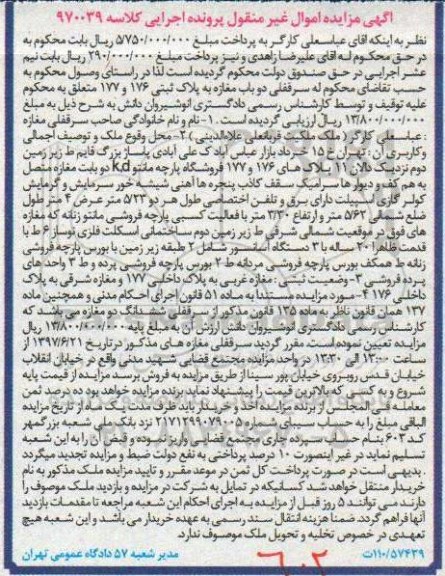 آگهی مزایده اموال غیر منقول پرونده اجرایی کلاسه ۹۷۰۰۳۹
نظر به اینکه آقای عباسعلی کارگر به پرداخت مبلغ ۵/۷۵۰/۰۰۰/۰۰۰ ریال بابت محکوم به
در حق محکوم له آقای علیرضا زاهدی و نیز پرداخت مبلغ ۲۹۰/۰۰۰/۰۰۰ ریال بابت نیم
عشر اجرایی در حق صندوق دولت محکوم گردیده است لذا در راستای وصول محکوم به
حسب تقاضای محکوم له سرقفلی دو باب مغازه به پلاک ثبتی ۱۷۶ و ۱۷۷ متعلق به محکوم
علیه توقیف و توسط کارشناس رسمی دادگستری انوشیروان دانش به شرح ذیل به مبلغ
۱۳/۸۰۰/۰۰۰/۰۰۰ ریال ارزیابی گردیده است. ۱- نام و نام خانوادگی صاحب سرقفلی مغازه
: عباسعلی کارگر (ملک ملکیت قربانعلی علاءالدینی) ۲- محل وقوع ملک و توصیف اجمالی
و کاربری آن : تهران خ ۱۵ خرداد بازار عباس آباد ک علی آبادی پاساژ بزرگ قایم ط زیر زمین
دوم نزدیک دالان ۱۱ پلاک های ۱۷۶ و ۱۷۷ فروشگاه پارچه مانتو k.d دو بابت مغازه متصل
به هم کف و دیوارها سرامیک سقف کاذب پنجره ها آهنی شیشه خور سرمایش و گرمایش
کولر گازی اسپیلت دارای برق و تلفن اختصاصی طول هر دو ۵/۲۳ متر عرض ۴ متر طول
ضلع شمالی ۵/۶۲ متر و ارتفاع ۳/۳۰ متر با فعالیت کسبی پارچه فروشی مانتو زنانه که مغازه
های فوق در موقعیت شمالی شرقی ط زیر زمین دوم ساختمانی اسکلت فلزی نوساز ۶ ط با
قدمت ظاهرا ۲۰ ساله با ۳ دستگاه آسانسور شامل ۲ طبقه زیر زمین با بورس پارچه فروشی
زنانه ط همکف بورس پارچه فروشی مردانه ط ۲ بورس پارچه فروشی پرده و ط ۳ واحد های
پرده فروشی ۳- وضعیت ثبتی : مغازه غربی به پلاک داخلی ۱۷۷ و مغازه شرقی به پلاک
داخلی ۱۷۶ ۴- مورد مزایده مستندا به ماده ۵۱ قانون اجرای احکام مدنی و همچنین ماده
۱۳۷ همان قانون ناظر به ماده ۱۳۵ قانون مذکور از سرقفلی ششدانگ دو مغازه می باشد که
کارشناس رسمی دادگستری انوشیروان دانش ارزش آن به مبلغ پایه ۱۳/۸۰۰/۰۰۰/۰۰۰ ریال
مزایده تعیین نموده است. مقرر گردید سرقفلی مغازه های مذکور در تاریخ ۱۳۹۷/۶/۲۱ از
ساعت ۱۲:۰۰ الی ۱۲:۳۰ در واحد مزایده مجتمع قضایی شهید مدنی واقع در خیابان انقلاب
خیابان قدس روبروی خیابان پور سینا از طریق مزایده به فروش برسد مزایده از قیمت پایه
شروع و به کسی که بالاترین قیمت را پیشنهاد نماید برنده مزایده خواهد بود ده درصد ثمن
معامله فی المجلس از برنده مزایده اخذ و خریدار باید ظرف مدت یک ماه از تاریخ مزایده
الباقی مبلغ را به حساب سیبای شماره نزد بانک ملی شعبه بزرگمهر
کد ۶۰۳ بنام حساب سپرده جاری مجتمع قضایی واریز نموده و قبض آن را به این شعبه
تسلیم نماید در غیر اینصورت ۱۰ درصد پرداختی به نفع دولت ضبط و مزایده تجدید میگردد
. بدیهی است در صورت پرداخت کل ثمن در موعد مقرر و تایید مزایده ملک مذکور به نام
خریدار منتقل خواهد شد کسانیکه در تمایل به شرکت در مزایده و بازدید ملک موصوف را
دارند می توانند ۵ روز قبل از مزایده به اجرای احکام این شعبه مراجعه تا مقدمات بازدید
آنها فراهم گردد. ضمنا هزینه انتقال سند رسمی به عهده خریدار می باشد و این شعبه هیچ
تعهدی در خصوص تخلیه و تحویل ملک موصوف ندارد.
۱۱۰/۵۷۴۳۹ت
مدیر شعبه ۵۷ دادگاه عمومی تهران
۶۰۲